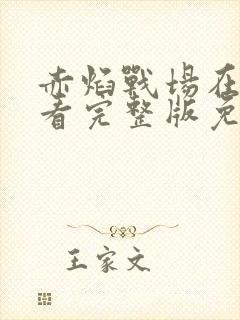 赤焰戰場在
看完整版免
王家文